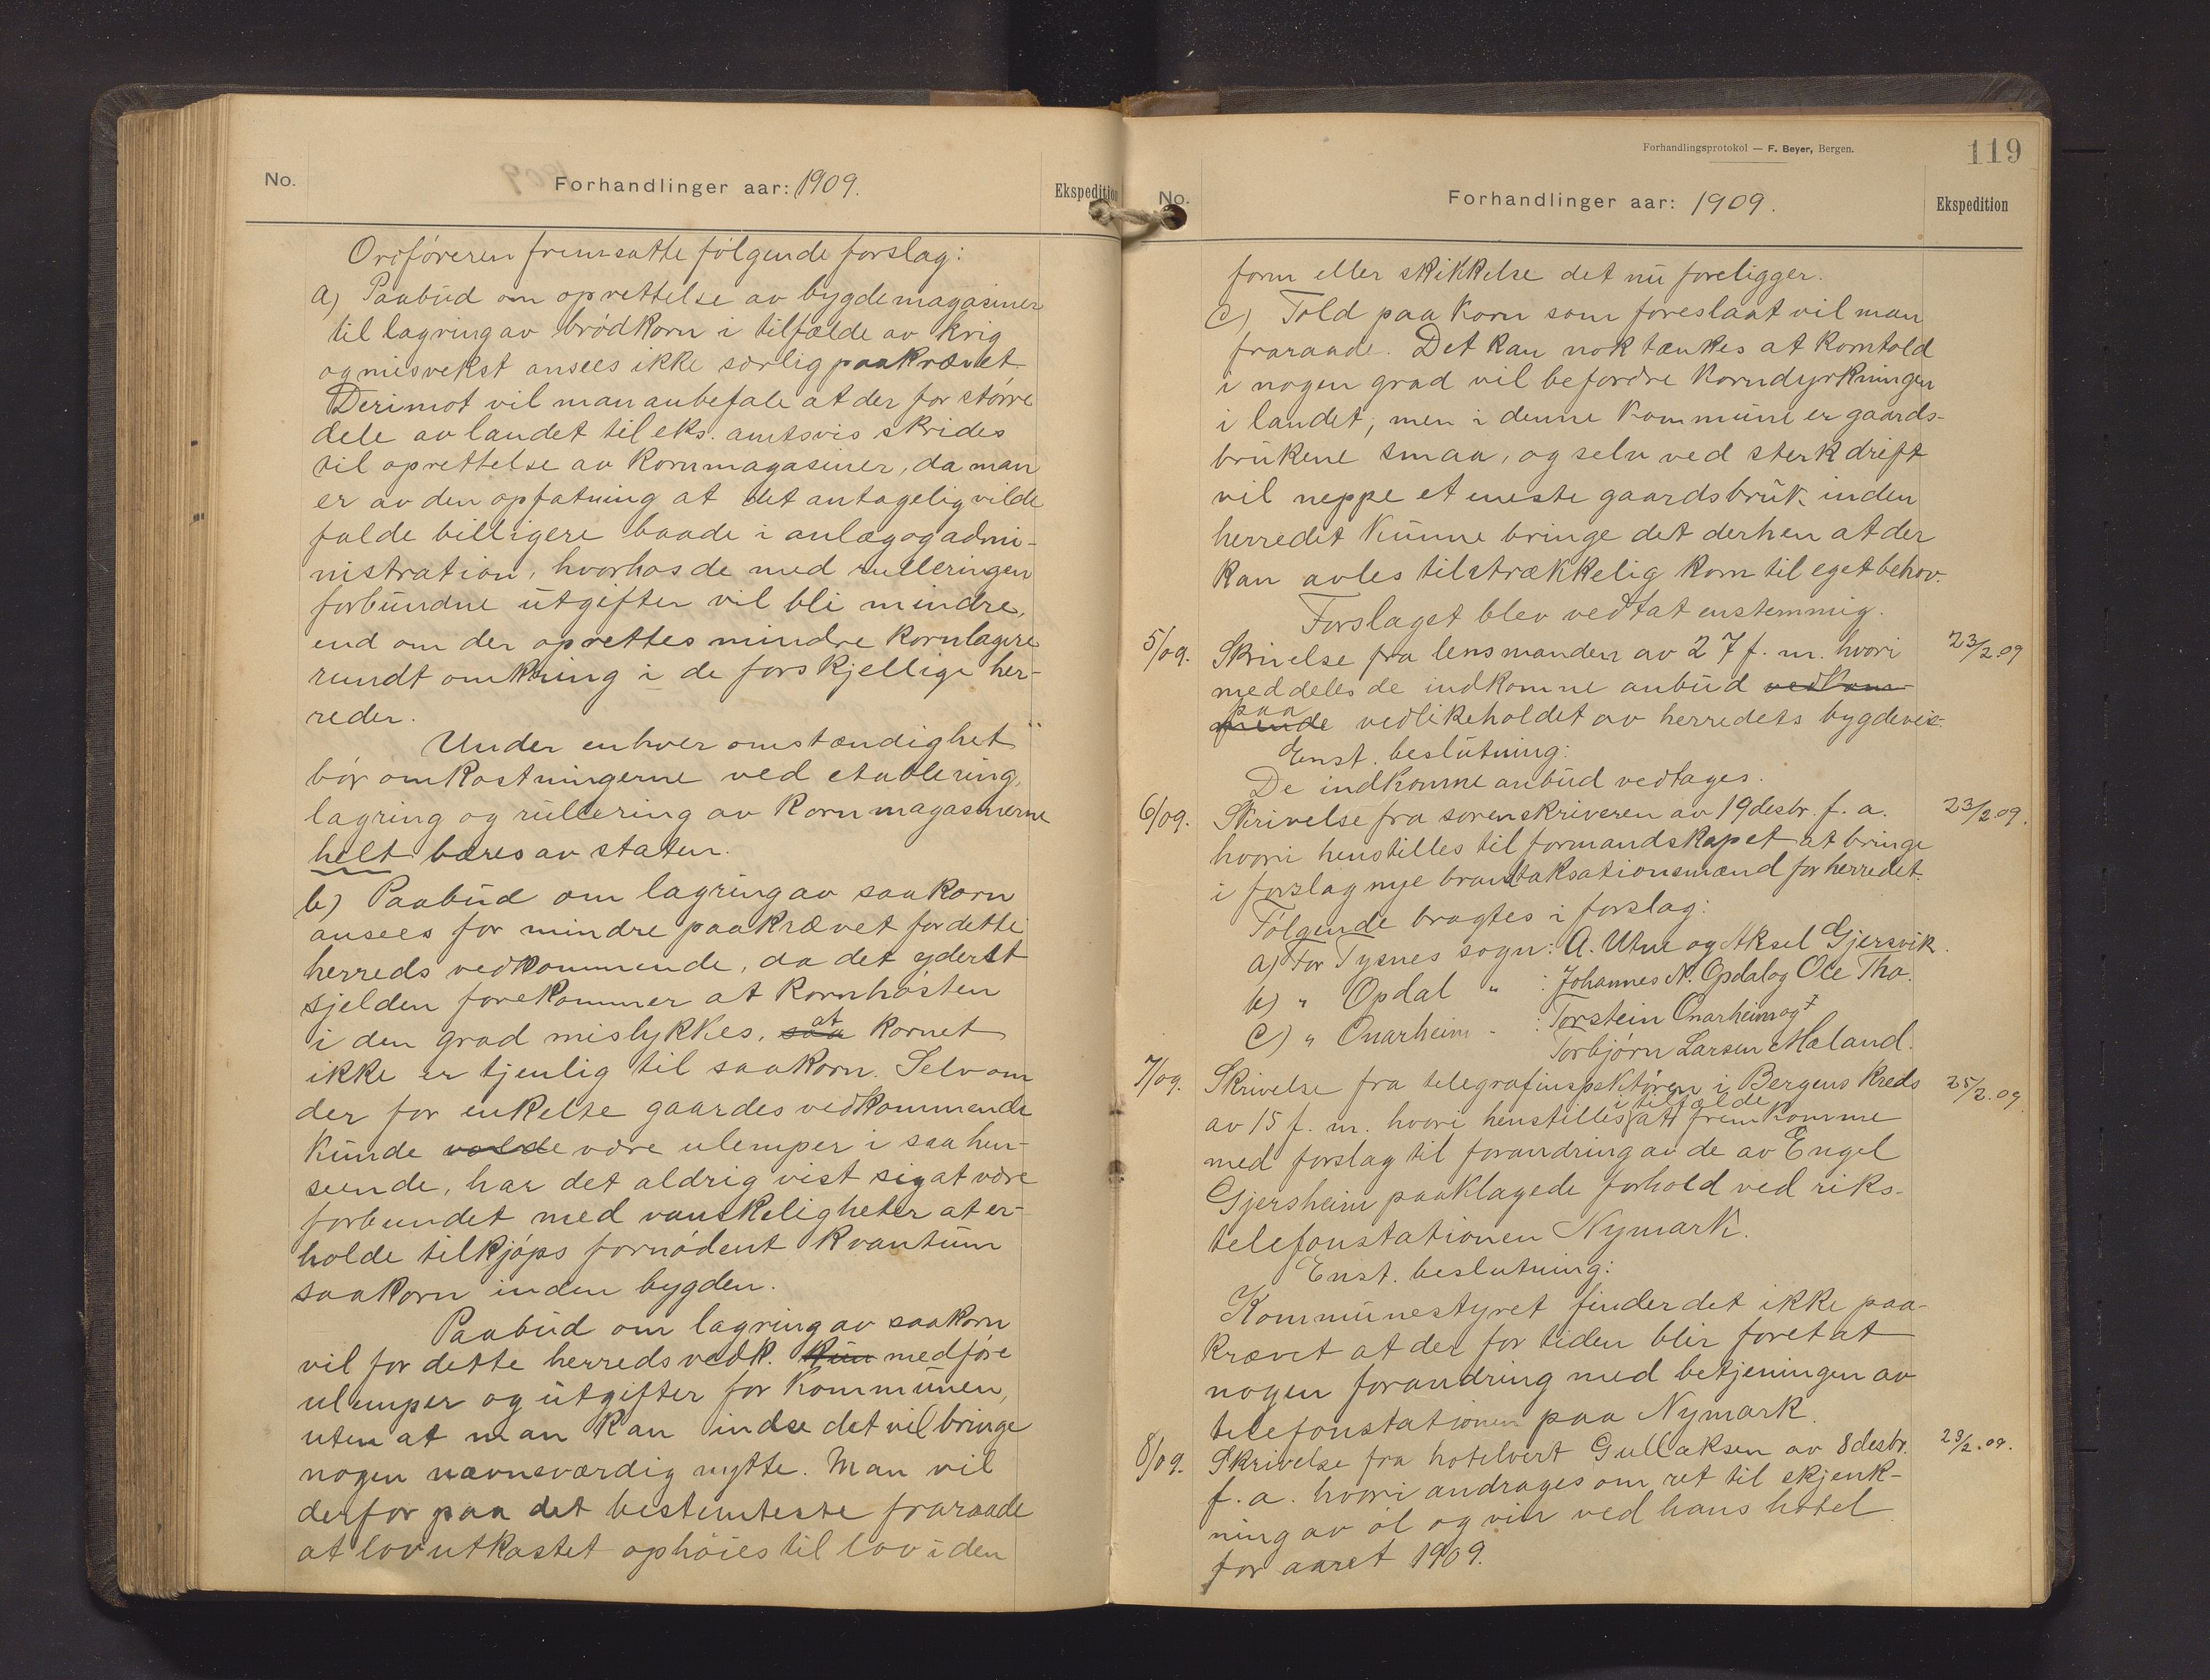 No.
Forhandlinger aar: 1909.
Ekspedition
Ordføreren fremsatte følgende forslag:
a) Paabud om oprettelse av bygdemagasiner
til lagring av brødkorn i tilfælde av krig
og misvekst ansees ikke særlig paakrævet
Derimot vil man anbefale at der for større
dele av landet til eks. amtsvis skrides
til oprettelse av kornmagasiner, da man
er av den opfatning at det antagelig vilde
falde billigere baade i anlæg og admi-
nistration, hvorhos de med rulleringen
forbundne utgifter vil bli mindre,
end om der oprettes mindre kornlagere
rundt omkring i de forskjellige her-
reder.
Under enhver omstændighet
bør omkostningerne ved etablering,
lagring og rullering av kornmagasinerne
helt bæres av staten.
b) Paabud om lagring av saakorn
ansees for mindre paakrævet for dette
herreds vedkommende, da det yderst
sjelden forekommer at kornhøsten
i den grad mislykkes, saa at kornet
ikke er tjenlig til saakorn. Selv om
der for enkelte gaardes vedkommende
kunde volde være ulemper i saa hen-
seende, har det aldrig vist sig at være
forbundet med vanskeligheter at er-
holde tilkjøps fornødent kvantum
saakorn inden bygden.
Paabud om lagring av saakorn
vil for dette herreds vedk. kun medføre
ulemper og utgifter for kommunen,
uten at man kan indse det vil bringe
nogen nævneværdig nytte. Man vil
derfor paa det bestemteste fraraade
at lovutkastet ophøies til lov i den
Forhandlingsprotokol — F. Beyer, Bergen.
119
No.
Forhandlinger aar: 1909.
Ekspedition
form eller skikkelse det nu foreligger.
c) Told paa korn som foreslaat vil man
fraraade. Det kan nok tænkes at korntold
i nogen grad vil befordre korndyrkningen
i landet, men i denne kommune er gaards-
brukene smaa, og selv ved sterk drift
vil neppe et eneste gaardsbruk inden
herredet kunne bringe det derhen at der
kan avles tilstrækkelig korn til eget behov.
Forslaget blev vedtat enstemmig.
5/09. Skrivelse fra lensmanden av 27 f. m. hvori 23/2 09
meddeles de indkomne anbud vedkom-
mende paa vedlikeholdet av herredets bygdevei.
Enst. beslutning:
De indkomne anbud vedtages.
6/09. Skrivelse fra sorenskriveren av 19 desbr. f. a. 23/2 09.
hvori henstilles til formandskapet at bringe
i forslag nye brandtaksationsmænd for herredet.
Følgende bragtes i forslag:
a) For Tysnes sogn: A. Utne og Aksel Gjersvik.
b) " Opdal " : Johannes N. Opdal og Ole Tho.
c) " Onarheim " : Torstein Onarheim og
Torbjørn Larsen Mæland.
7/09. Skrivelse fra telegrafinspektøren i Bergens kreds 25/2.09
av 15 f. m. hvori henstilles i tilfælde at fremkomme
med forslag til forandring av de av Engel
Gjersheim paaklagede forhold ved riks-
telefonstationen Nymark.
Enst. beslutning:
Kommunestyret finder det ikke paa-
krævet at der for tiden blir foretat
nogen forandring med betjeningen av
telefonstationen paa Nymark.
8/09. Skrivelse fra hotelvert Gullaksen av 8 desbr. 23/2.09.
f. a. hvori andrages om ret til skjenk-
ning av øl og vin ved hans hotel
for aaret 1909.